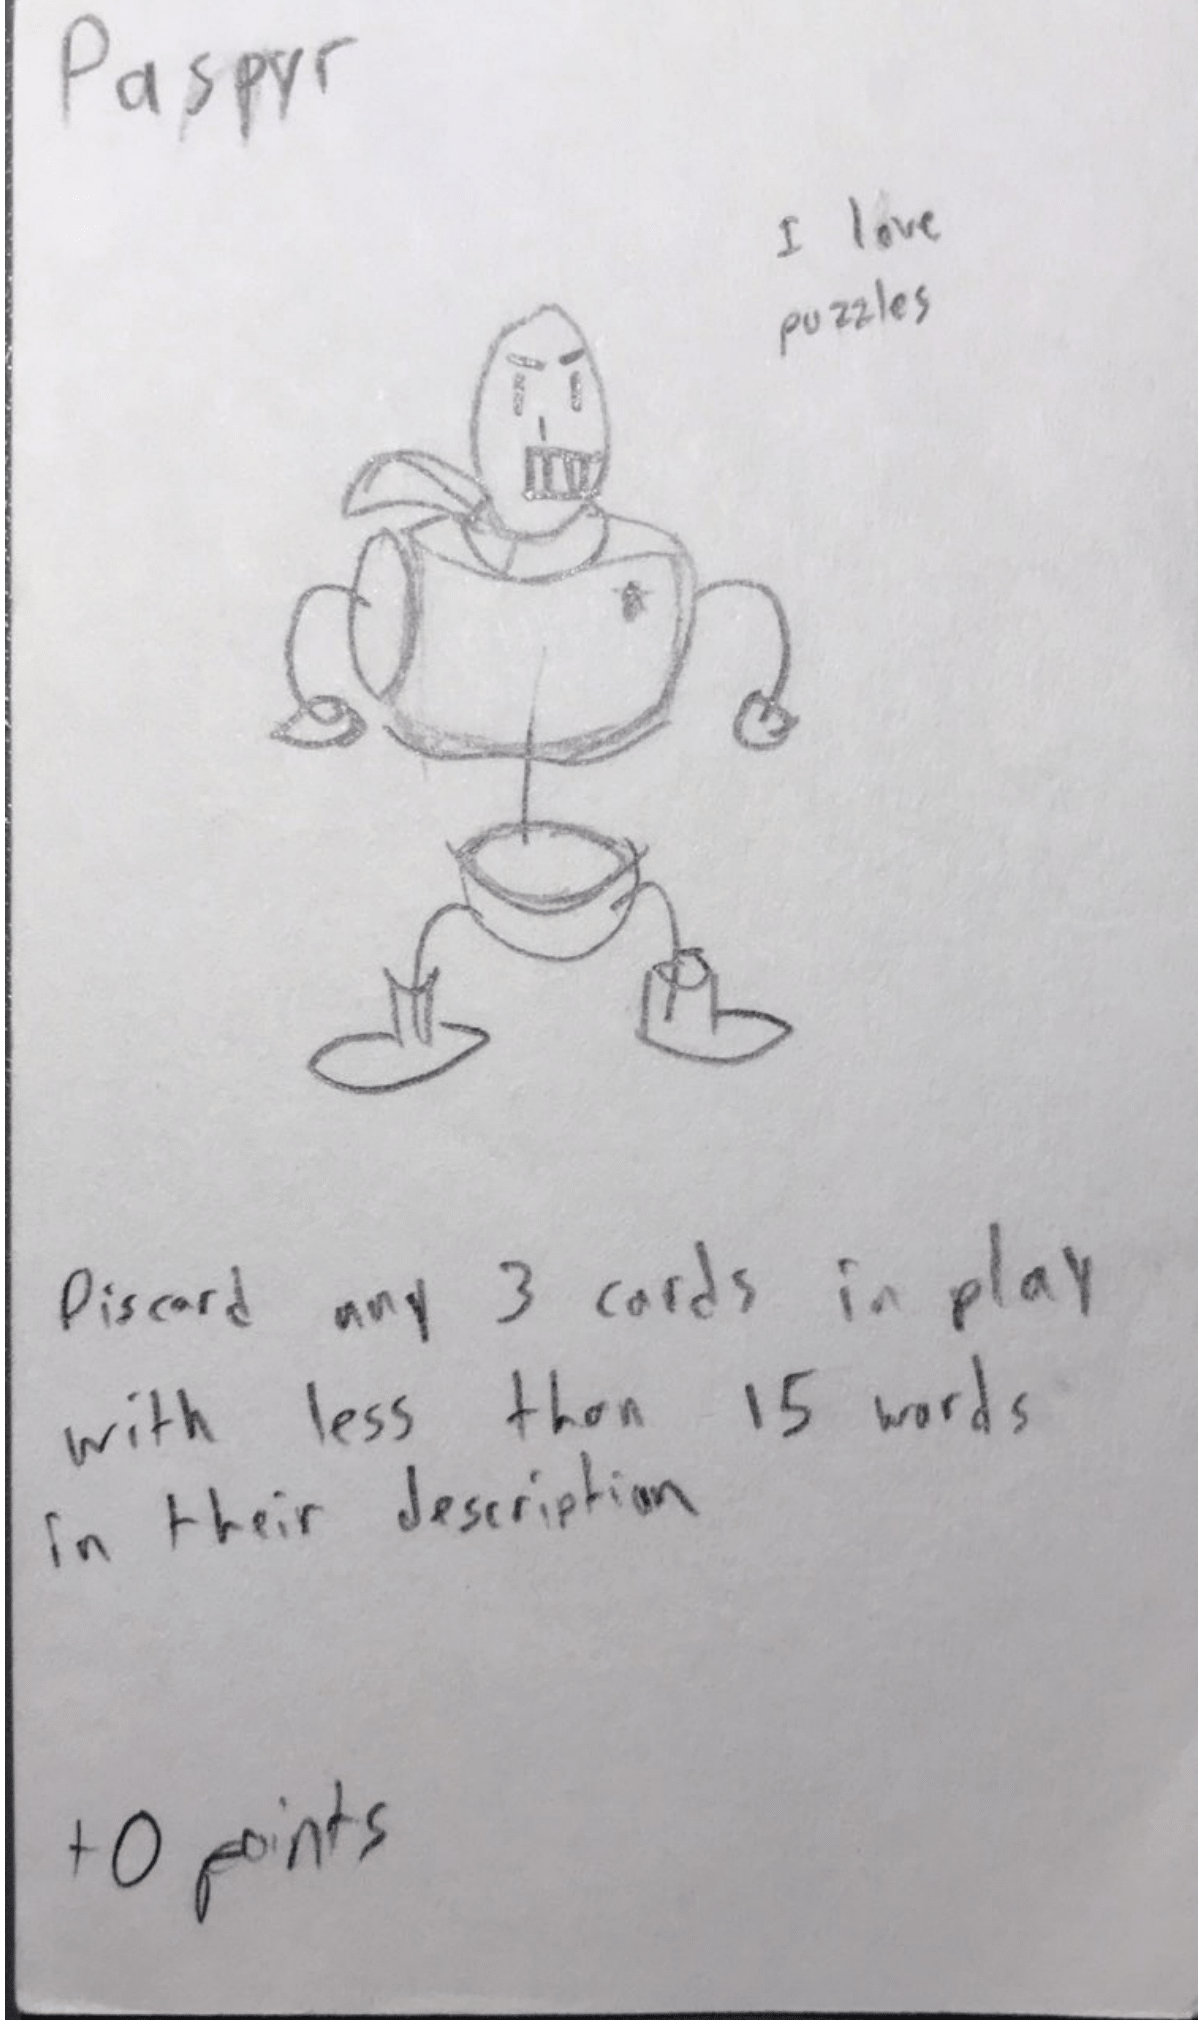 Paspyr
I love
puzzles
Discard any 3 cards in play
with less than 15 words
in their description
+0 points